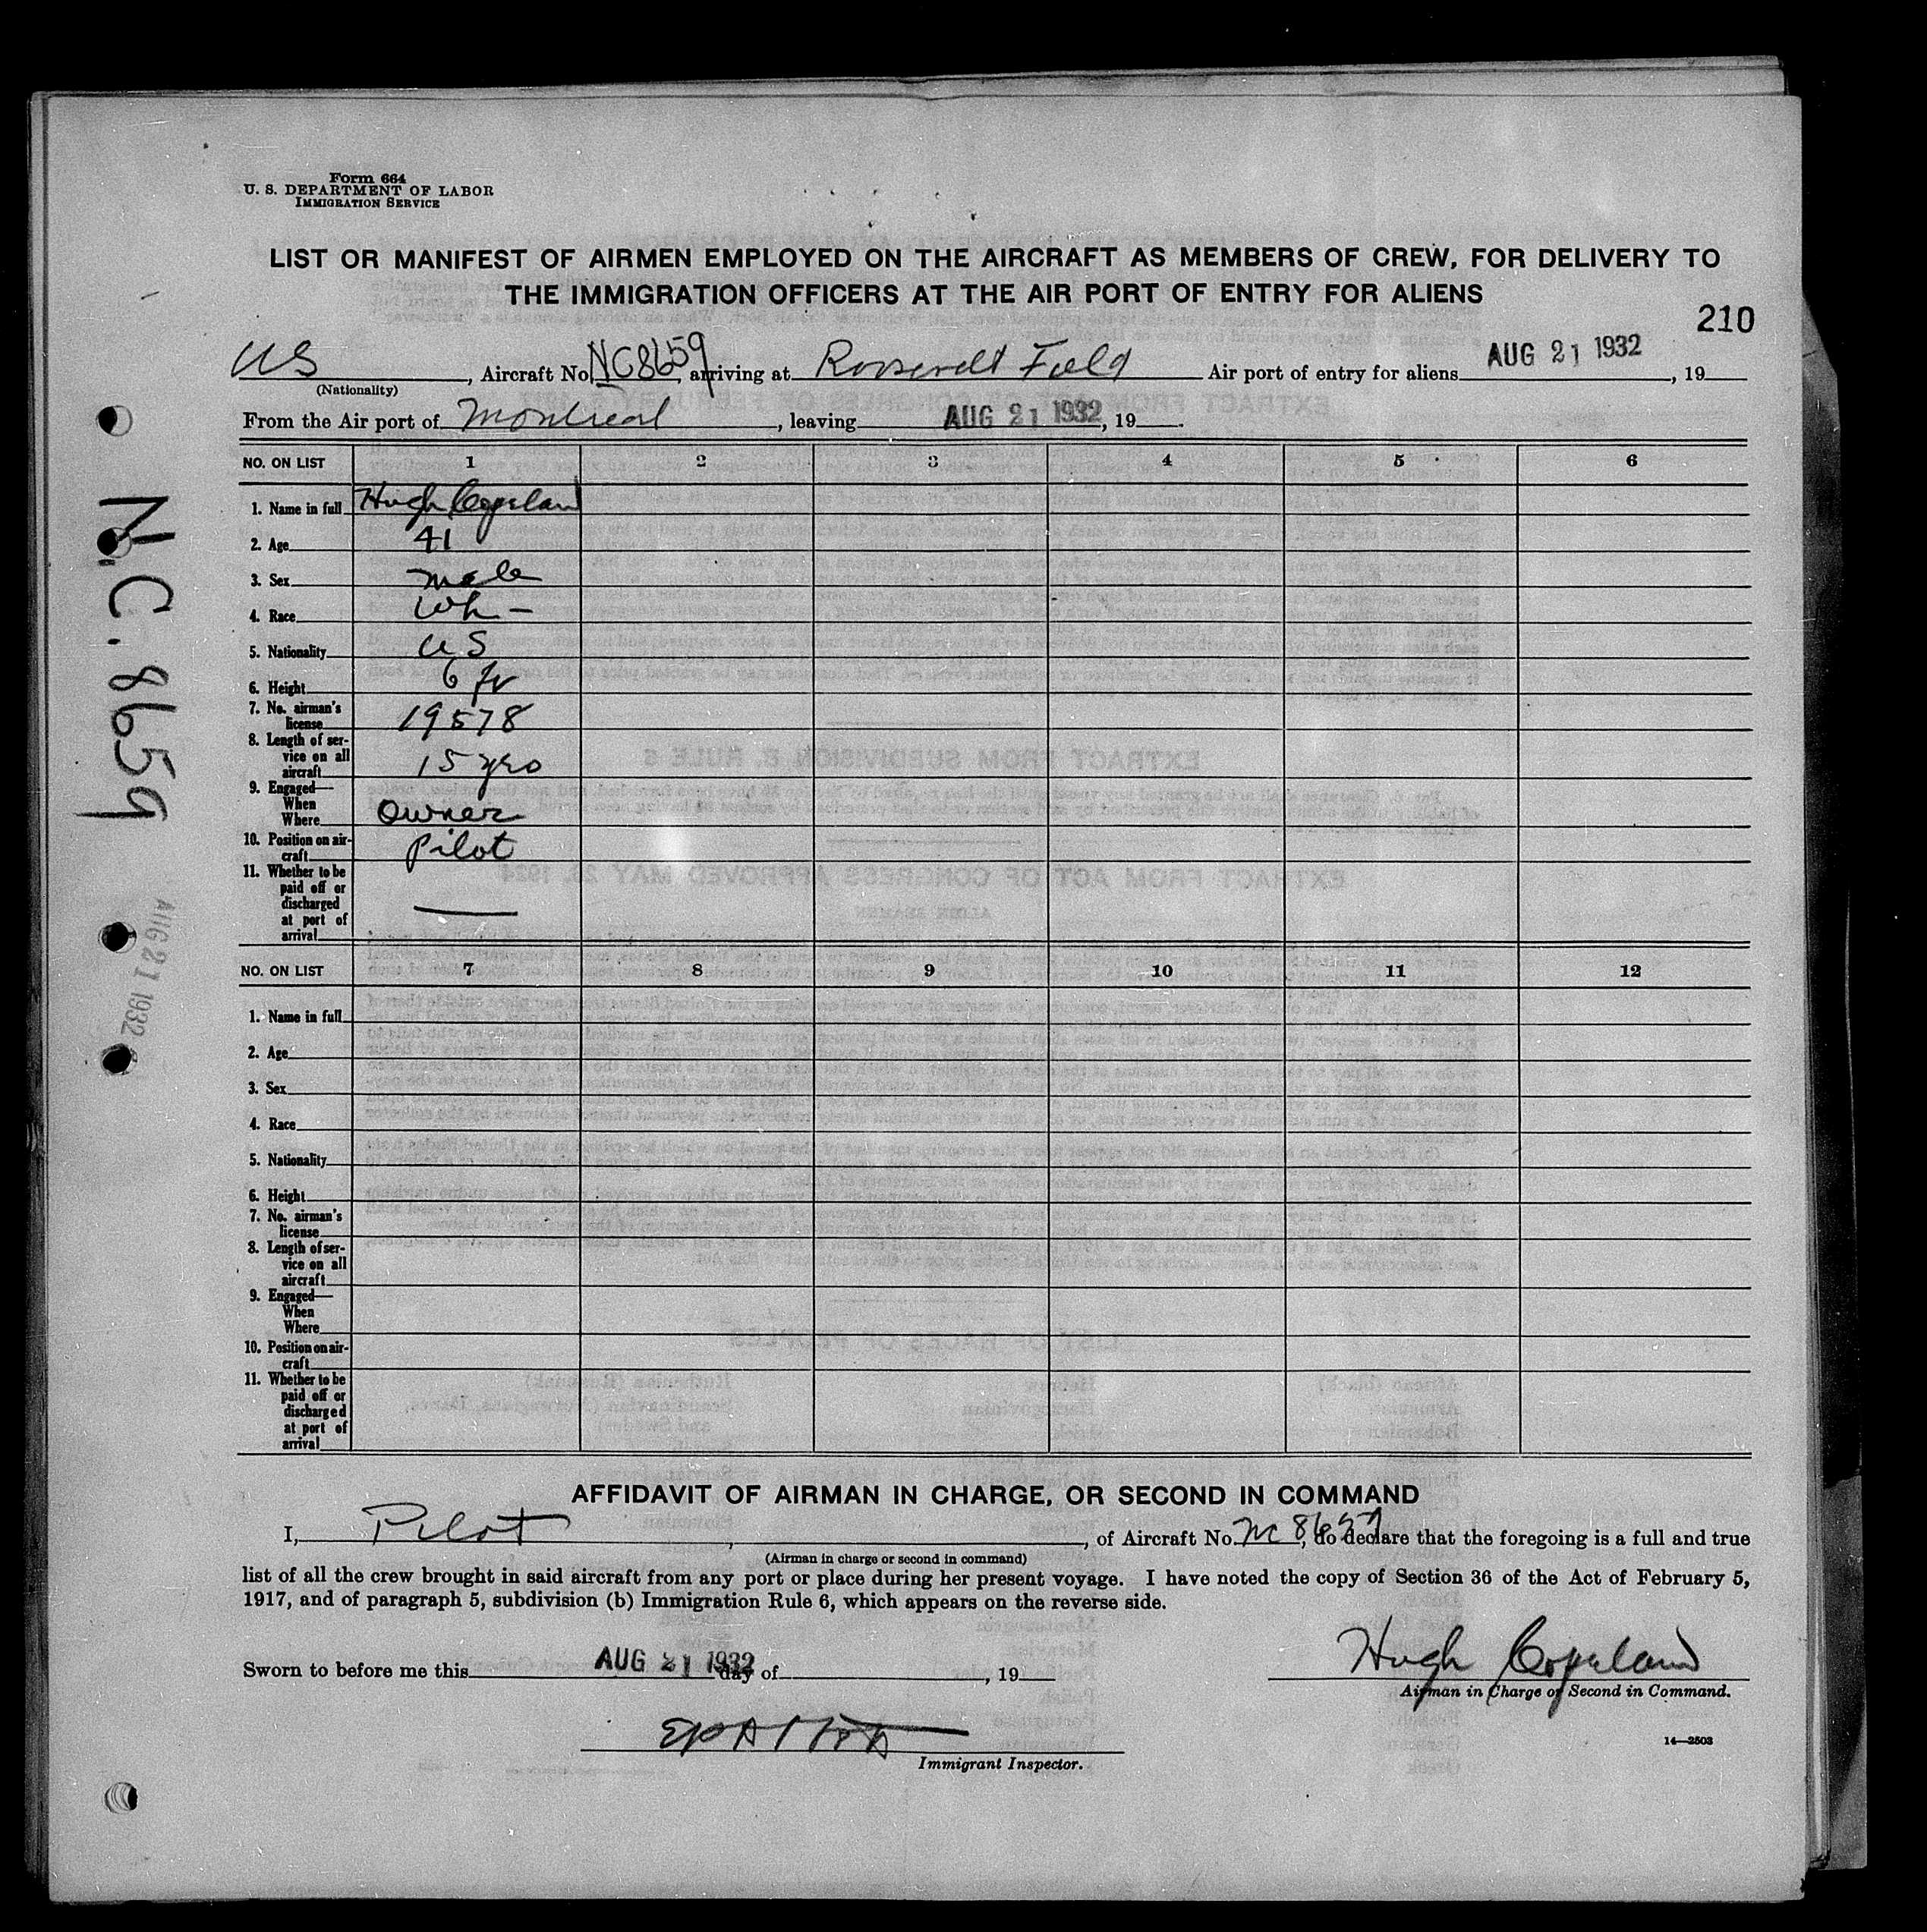 Form 664
U. S. DEPARTMENT OF LABOR
IMMIGRATION SERVICE
LIST OR MANIFEST OF AIRMEN EMPLOYED ON THE AIRCRAFT AS MEMBERS OF CREW, FOR DELIVERY TO
THE IMMIGRATION OFFICERS AT THE AIR PORT OF ENTRY FOR ALIENS
210
US, Aircraft No. NC8659 arriving at Roosevelt Field Air port of entry for aliens AUG 21 1932, 19
(Nationality)
From the Air port of Montreal, leaving AUG 21 1932, 19.
NO. ON LIST 1 2 3 4 5 6
1. Name in full Hugh Copeland
2. Age 41
3. Sex male
4. Race Wh -
5. Nationality US
6. Height 6 ft
7. No. airman's
license 19578
8. Length of ser-
vice on all
aircraft 15 yrs
9. Engaged—
When
Where Owner
10. Position on air-
craft Pilot
11. Whether to be
paid off or
discharged
at port of
arrival —
NO. ON LIST 7 8 9 10 11 12
1. Name in full
2. Age
3. Sex
4. Race
5. Nationality
6. Height
7. No. airman's
license
8. Length of ser-
vice on all
aircraft
9. Engaged—
When
Where
10. Position on air-
craft
11. Whether to be
paid off or
discharged
at port of
arrival
AFFIDAVIT OF AIRMAN IN CHARGE, OR SECOND IN COMMAND
I, Pilot, of Aircraft No. NC 8659, do declare that the foregoing is a full and true
(Airman in charge or second in command)
list of all the crew brought in said aircraft from any port or place during her present voyage. I have noted the copy of Section 36 of the Act of February 5,
1917, and of paragraph 5, subdivision (b) Immigration Rule 6, which appears on the reverse side.
Sworn to before me this AUG 21 1932 day of, 19
Hugh Copeland
Airman in Charge or Second in Command.
Immigrant Inspector.
14—2503
N.C. 8659
AUG 21 1932